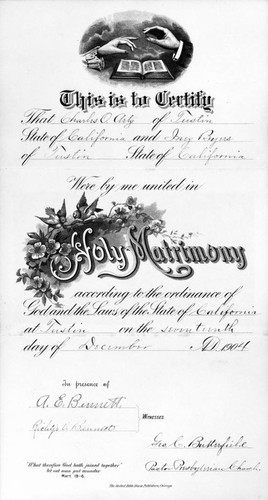 This is to Certify
That Charles O. Arty of Tustin
State of California and Inez Byers
of Tustin State of California
Were by me united in
Holy Matrimony
according to the ordinance of
God and the Laws of the State of California
at Tustin on the seventeenth
day of December A.D. 1904
In presence of
A. E. Bennett
Bennett
Witnesses
Geo. C. Butterfield
Pastor Presbyterian Church
"What therefore God hath joined together
let not man put asunder"
Mark 10-9.